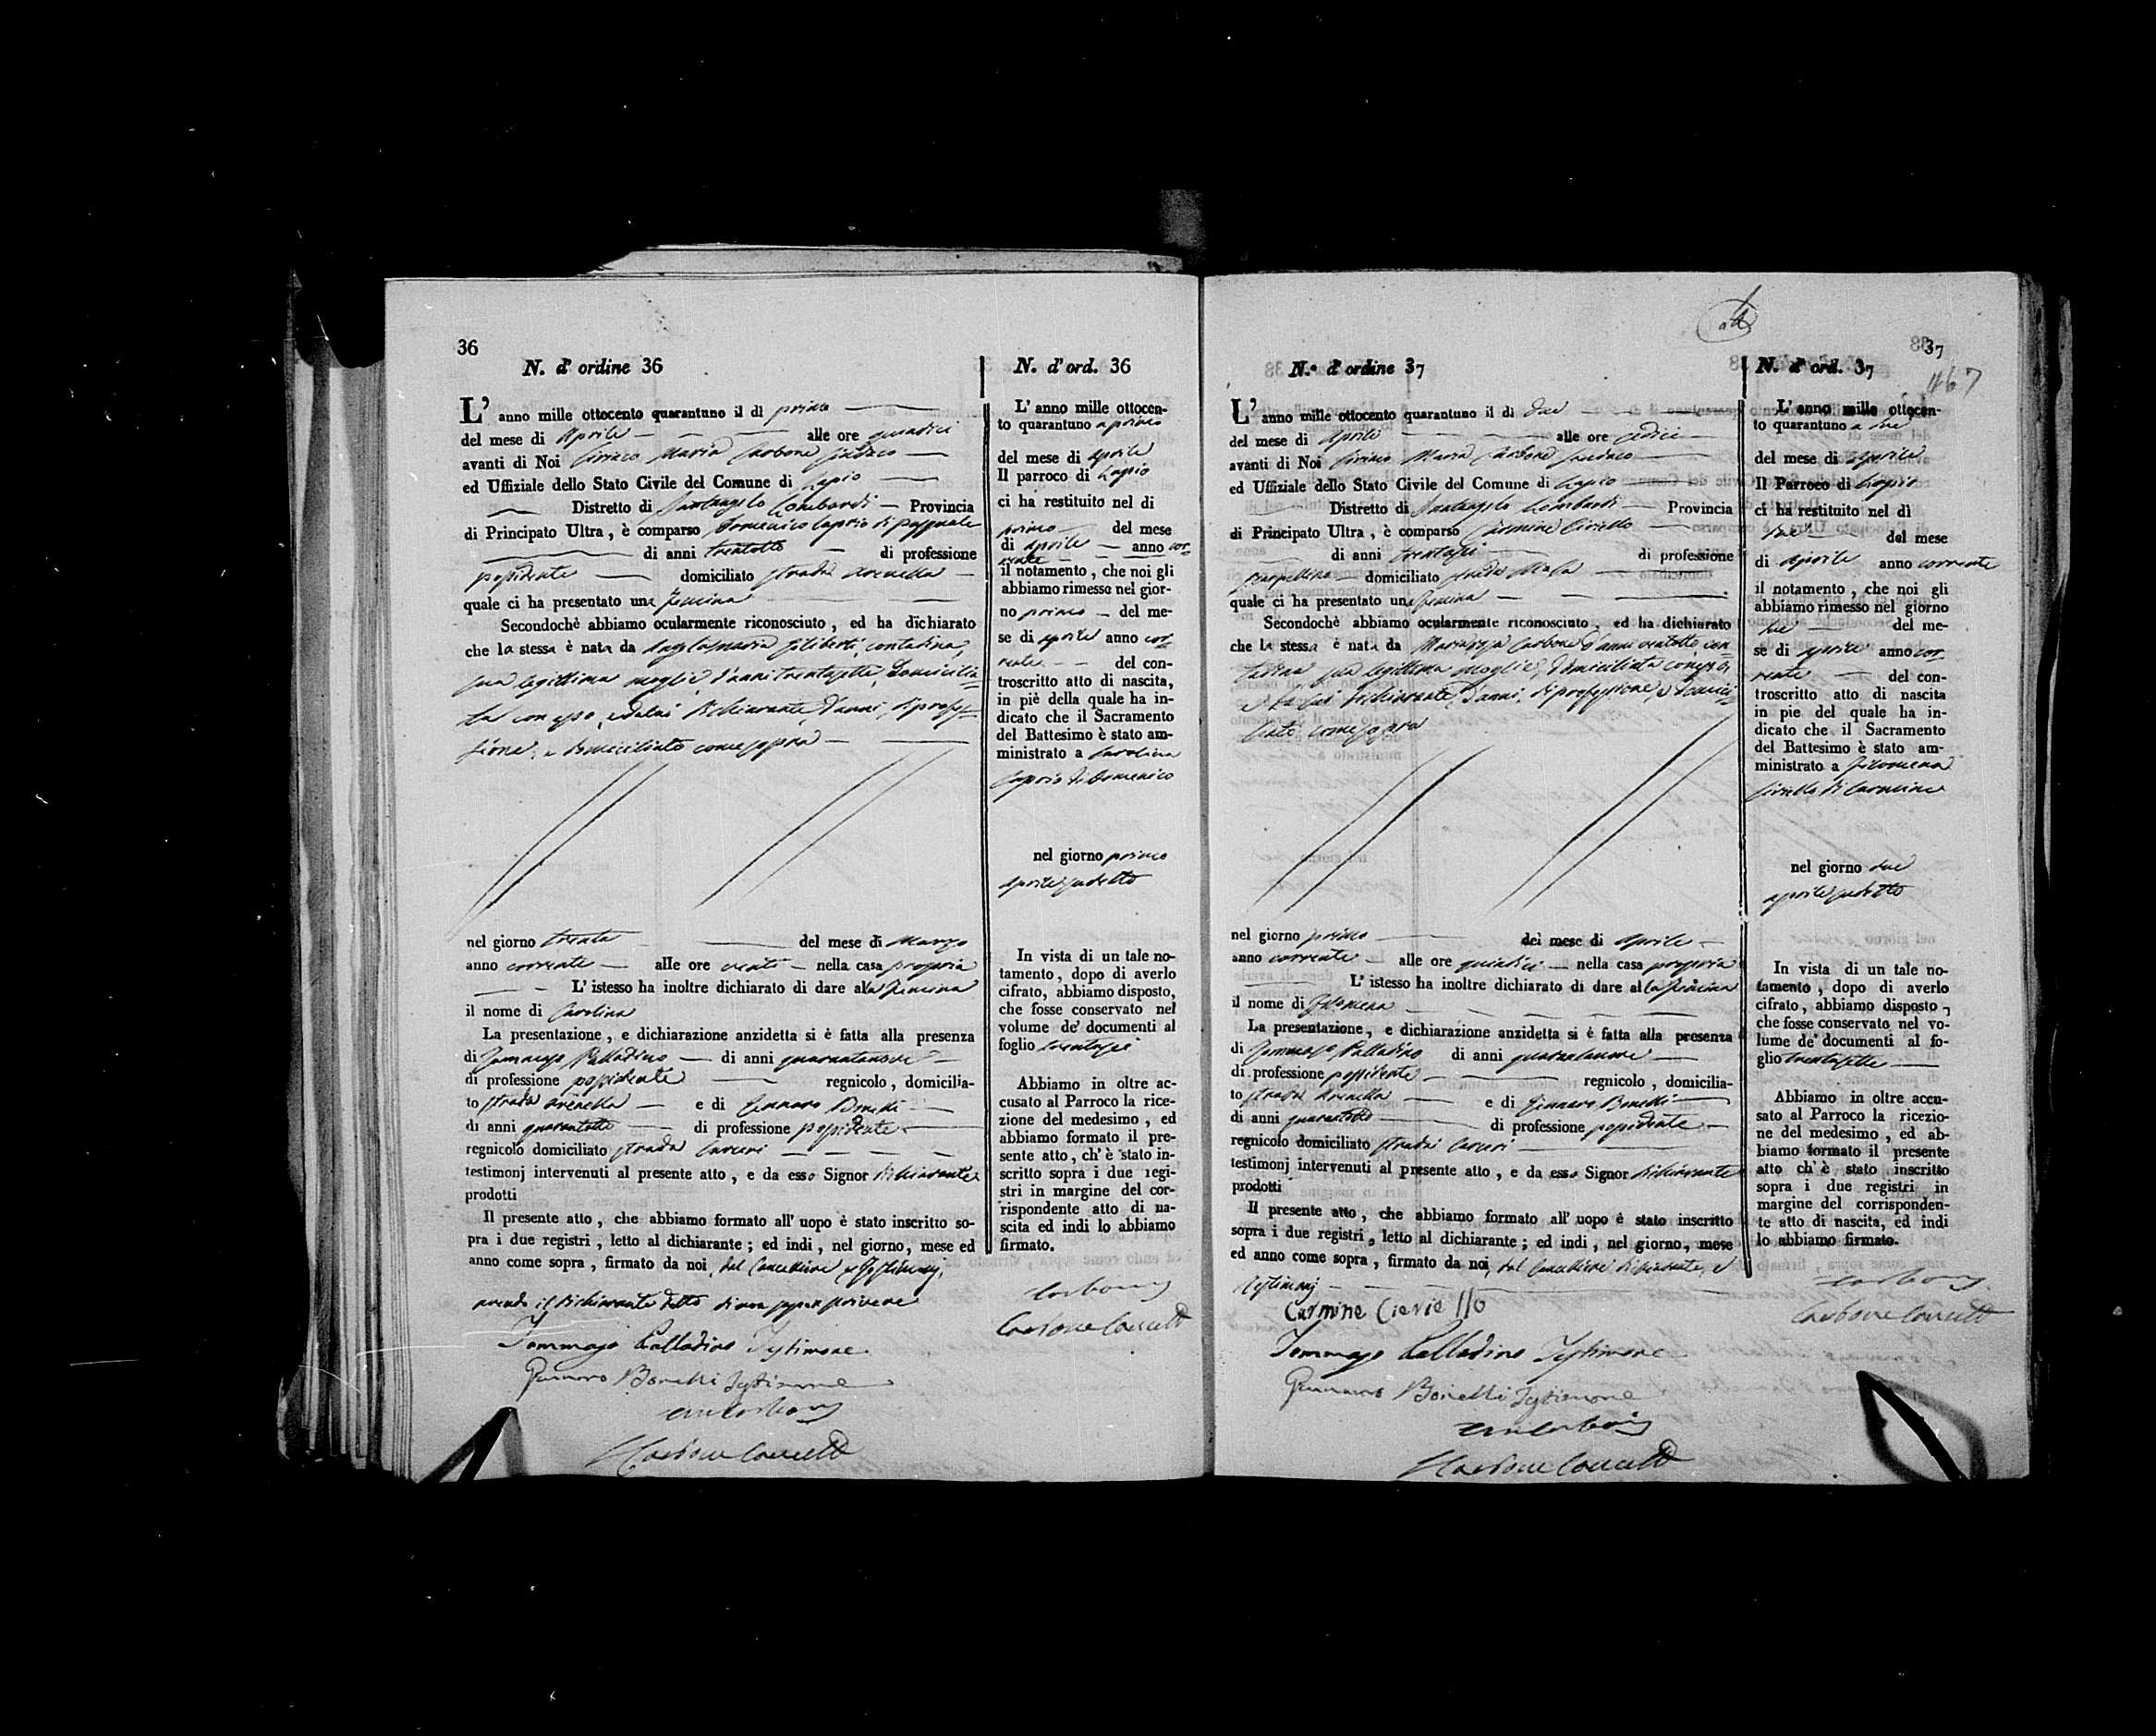 36
N. d' ordine 36
L' anno mille ottocento quarantuno il dì primo
del mese di Aprile alle ore quindici
avanti di Noi Ciriaco Maria Carbone Sindaco
ed Uffiziale dello Stato Civile del Comune di Lapio
Distretto di Santangelo Lombardi Provincia
di Principato Ultra, è comparso Domenico Caprio di Pasquale
di anni trentotto di professione
possidente domiciliato strada Arenella
quale ci ha presentato una femina
Secondochè abbiamo ocularmente riconosciuto, ed ha dichiarato
che la stessa è nata da Angelamaria Ciliberti, contadina,
sua legittima moglie d'anni trentasette, domicilia=
ta con esso, e da lui dichiarante, d'anni, di profes=
sione, e domiciliato come sopra
nel giorno trenta del mese di Marzo
anno corrente alle ore venti nella casa propria
L' istesso ha inoltre dichiarato di dare alla femina
il nome di Carolina
La presentazione, e dichiarazione anzidetta si è fatta alla presenza
di Tommaso Palladino di anni quarantanove
di professione possidente regnicolo, domicilia-
to strada Arenella e di Gennaro Bonelli
di anni quarantotto di professione possidente
regnicolo domiciliato strada Carceri
testimonj intervenuti al presente atto, e da esso Signor dichiarante
prodotti
Il presente atto, che abbiamo formato all' uopo è stato inscritto so-
pra i due registri, letto al dichiarante; ed indi, nel giorno, mese ed
anno come sopra, firmato da noi, dal Cancelliere e Testimonj,
avendo il dichiarante detto di non sapere scrivere
Tommaso Palladino Testimone
Gennaro Bonelli Testimone
Carbone
Carbone
N. d' ord. 36
L' anno mille ottocen-
to quarantuno a primo
del mese di Aprile
Il parroco di Lapio
ci ha restituito nel dì
primo del mese
di Aprile anno cor=
rente
il notamento, che noi gli
abbiamo rimesso nel gior-
no primo del me-
se di Aprile anno cor=
rente del con-
troscritto atto di nascita,
in piè della quale ha in-
dicato che il Sacramento
del Battesimo è stato am-
ministrato a Carolina
Caprio di Domenico
nel giorno primo
Aprile sudetto
In vista di un tale no-
tamento, dopo di averlo
cifrato, abbiamo disposto,
che fosse conservato nel
volume de' documenti al
foglio trentasei
Abbiamo in oltre ac-
cusato al Parroco la rice-
zione del medesimo, ed
abbiamo formato il pre-
sente atto, ch' è stato in-
scritto sopra i due regi-
stri in margine del cor-
rispondente atto di na-
scita ed indi lo abbiamo
firmato.
Carbone
Carbone
37
N.° d' ordine 37
L' anno mille ottocento quarantuno il dì due
del mese di Aprile alle ore sedici
avanti di Noi Ciriaco Maria Carbone Sindaco
ed Uffiziale dello Stato Civile del Comune di Lapio
Distretto di Santangelo Lombardi Provincia
di Principato Ultra, è comparso Carmine Ciriello
di anni trentasei di professione
scarpellino domiciliato strada
quale ci ha presentato una femina
Secondochè abbiamo ocularmente riconosciuto, ed ha dichiarato
che la stessa è nata da Mariarosa Carbone d'anni ventotto, con=
tadina sua legittima moglie, domiciliata con esso,
e da lui dichiarante, d'anni, di professione, e domici=
liato come sopra
nel giorno primo del mese di Aprile
anno corrente alle ore quindici nella casa propria
L' istesso ha inoltre dichiarato di dare alla femina
il nome di Filomena
La presentazione, e dichiarazione anzidetta si è fatta alla presenza
di Tommaso Palladino di anni quarantanove
di professione possidente regnicolo, domicilia-
to strada Arenella e di Gennaro Bonelli
di anni quarantotto di professione possidente
regnicolo domiciliato strada Carceri
testimonj intervenuti al presente atto, e da esso Signor dichiarante
prodotti
Il presente atto, che abbiamo formato all' uopo è stato inscritto
sopra i due registri, letto al dichiarante; ed indi, nel giorno, mese
ed anno come sopra, firmato da noi, dal Cancelliere dichiarante, e
Testimonj
Carmine Cierie llo
Tommaso Palladino Testimone
Gennaro Bonelli Testimone
Carbone
Carbone
N. d' ord. 37
467
L' anno mille ottocen-
to quarantuno a due
del mese di Aprile
Il Parroco di Lapio
ci ha restituito nel dì
due del mese
di Aprile anno corrente
il notamento, che noi gli
abbiamo rimesso nel giorno
due del me-
se di Aprile anno cor=
rente del con-
troscritto atto di nascita
in pie del quale ha in-
dicato che il Sacramento
del Battesimo è stato am-
ministrato a Filomena
Ciriello di Carmine
nel giorno due
Aprile sudetto
In vista di un tale no-
tamento, dopo di averlo
cifrato, abbiamo disposto,
che fosse conservato nel vo-
lume de' documenti al fo-
glio trentasette
Abbiamo in oltre accu-
sato al Parroco la ricezio-
ne del medesimo, ed ab-
biamo formato il presente
atto ch' è stato inscritto
sopra i due registri in
margine del corrisponden-
te atto di nascita, ed indi
lo abbiamo firmato.
Carbone
Carbone